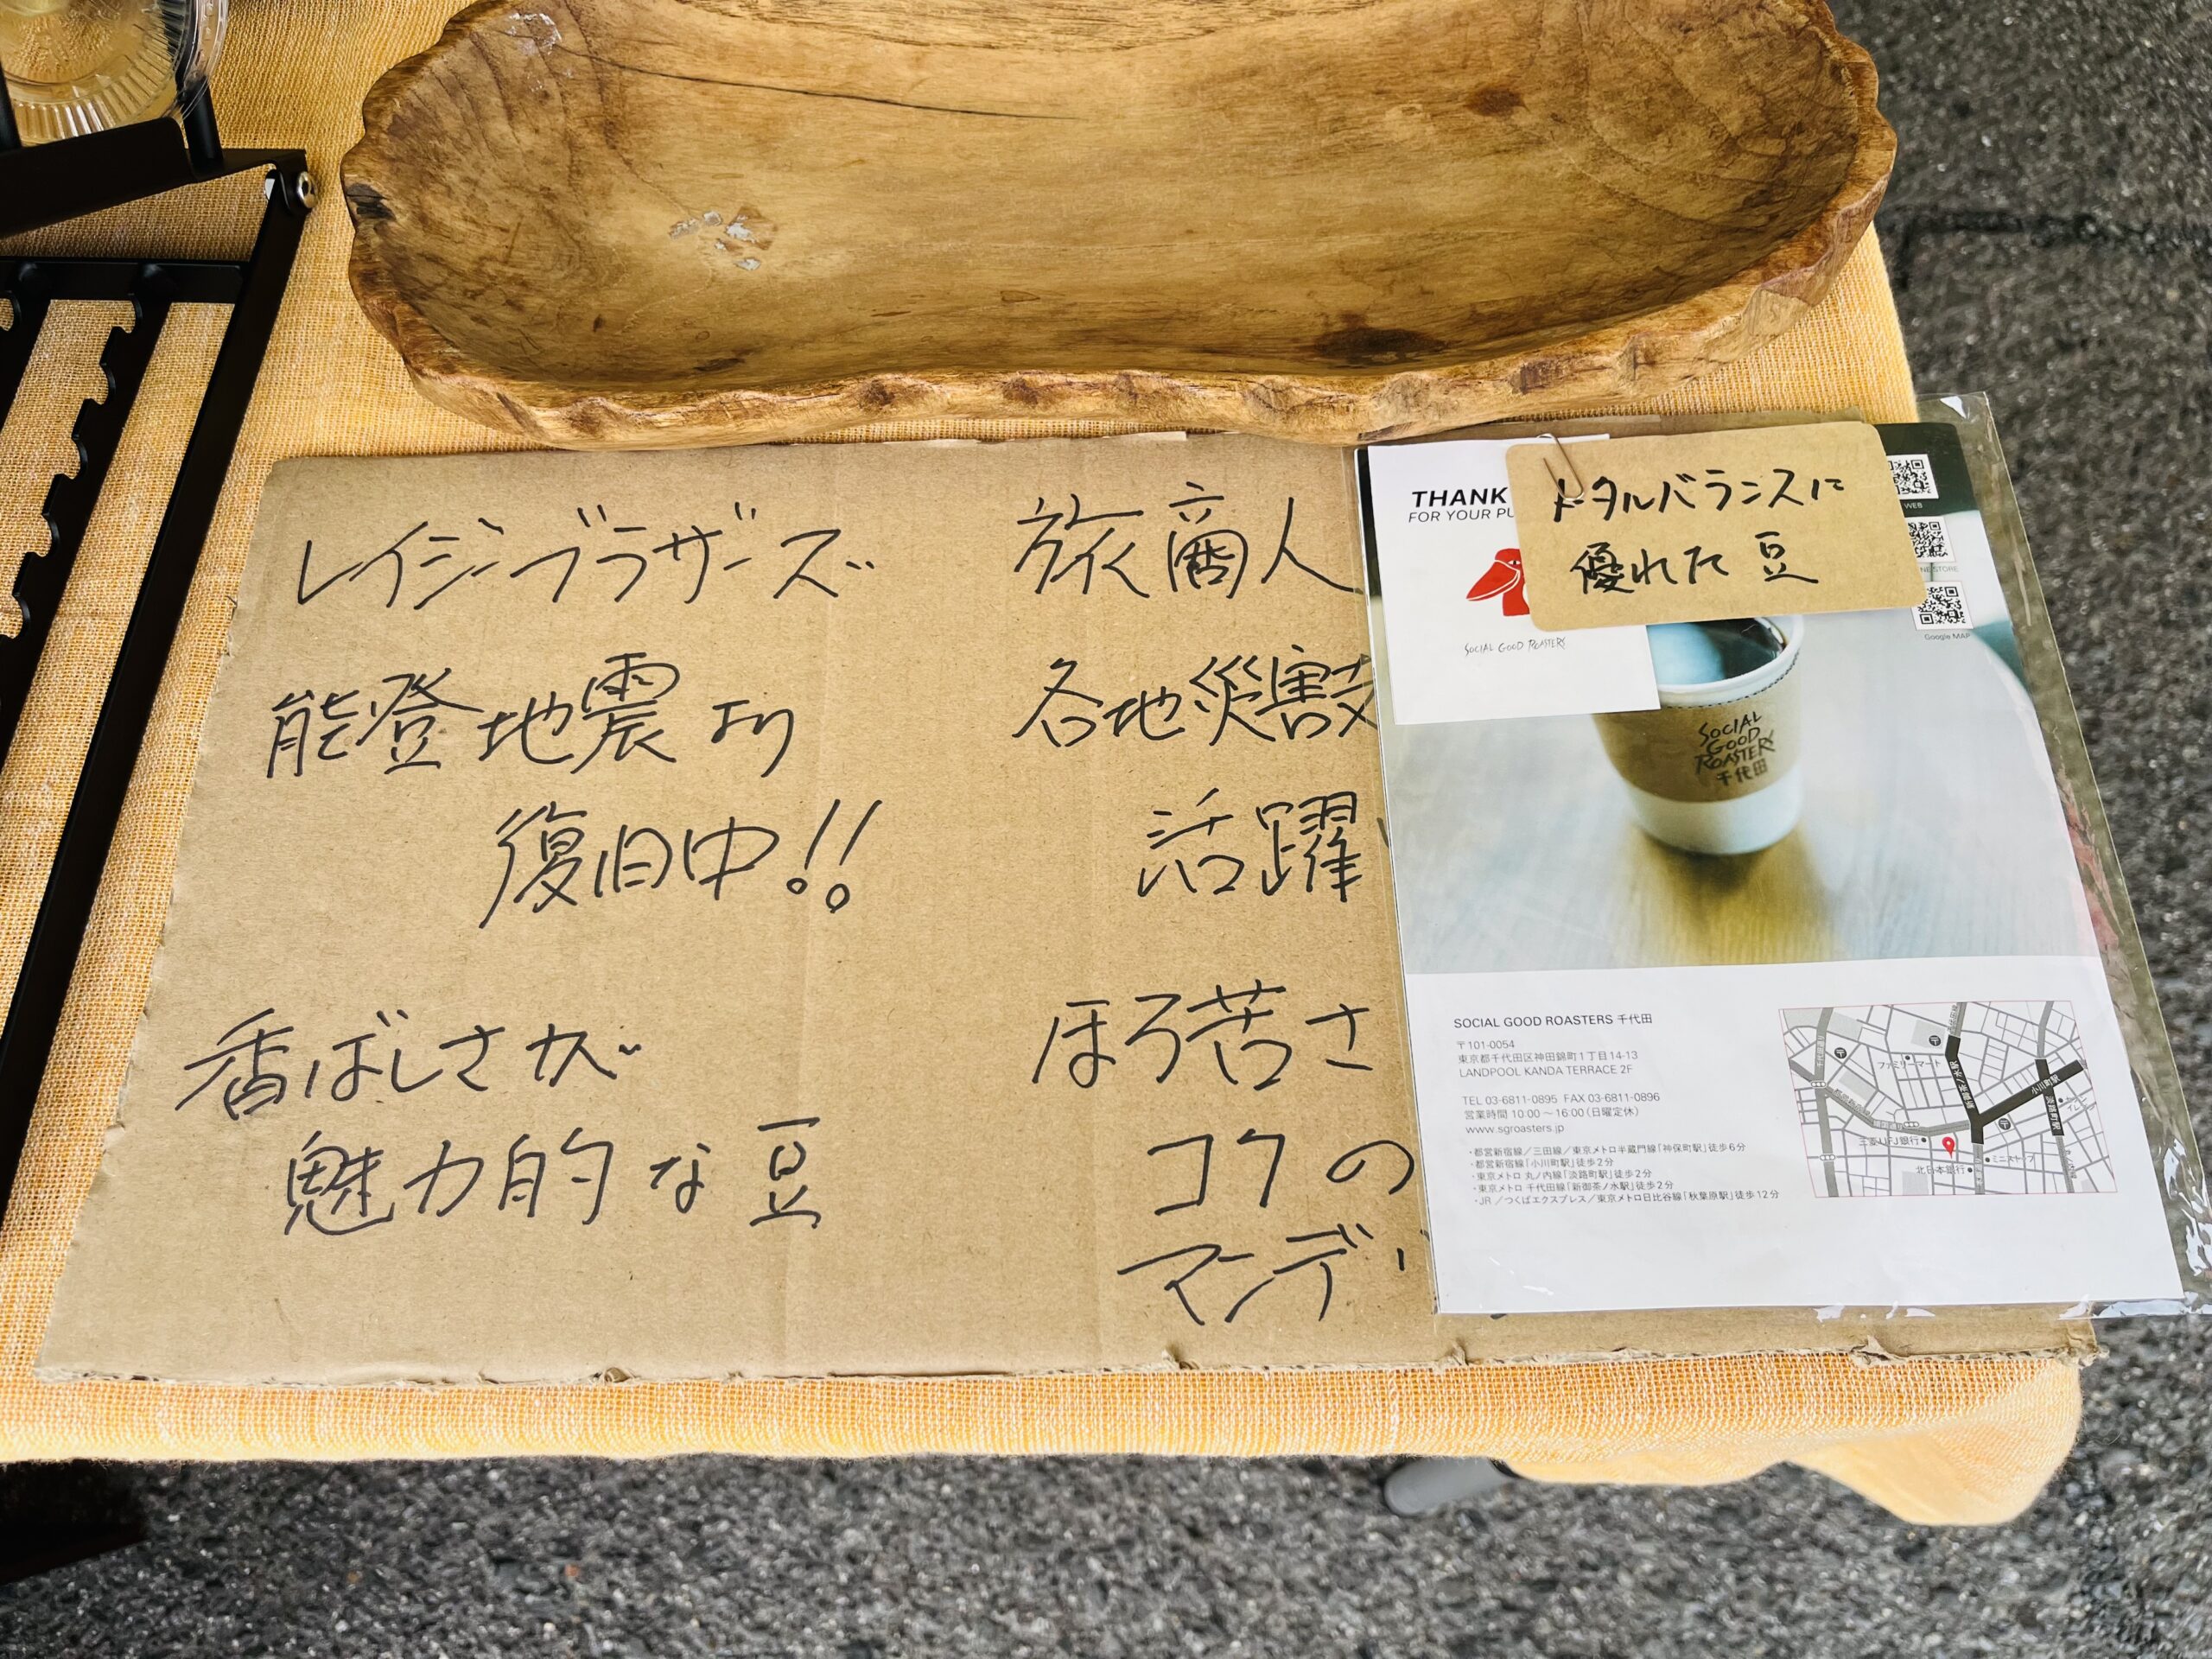 レイジーブラザーズ
能登地震より
復旧中!!
香ばしさが
魅力的な豆
旅商人
各地災害
活躍
ほろ苦さ
コクの
マンデ
トタルバランスに
優れた豆
THANK
FOR YOUR PU
SOCIAL GOOD ROASTERS
WEB
NE STORE
Google MAP
SOCIAL
GOOD
ROASTERS
千代田
SOCIAL GOOD ROASTERS 千代田
〒101-0054
東京都千代田区神田錦町1丁目14-13
LANDPOOL KANDA TERRACE 2F
TEL 03-6811-0895 FAX 03-6811-0896
営業時間 10:00～16:00(日曜定休)
www.sgroasters.jp
・都営新宿線／三田線／東京メトロ半蔵門線「神保町駅」徒歩6分
・都営新宿線「小川町駅」徒歩2分
・東京メトロ 丸ノ内線「淡路町駅」徒歩2分
・東京メトロ 千代田線「新御茶ノ水駅」徒歩2分
・JR／つくばエクスプレス／東京メトロ日比谷線「秋葉原駅」徒歩12分
ファミリーマート
小川町駅
淡路町駅
三菱UFJ銀行
ミニストップ
北日本銀行